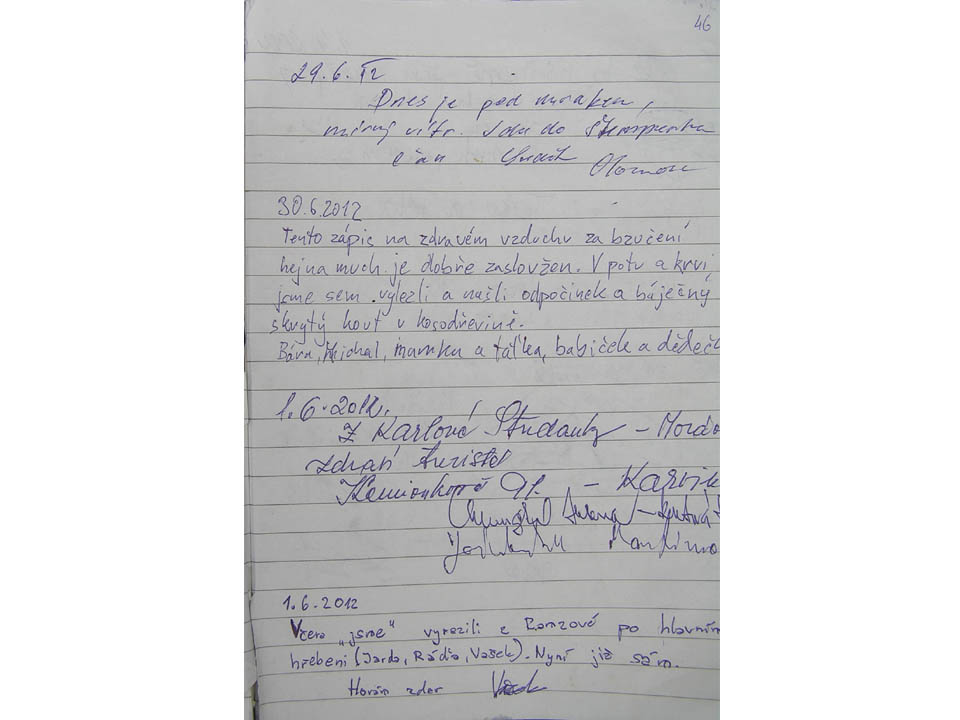 46
29.6.12
Dnes je pod mrakem,
mírný vítr. Jdu do
Olomouc
30.6.2012
Tento zápis na zdravém vzduchu za bzučení
hejna much je dobře zasloužen. V potu a krvi
jsme sem vylezli a našli odpočinek a báječný
skrytý kout v kosodřevině.
Bára, Michal, mamka a taťka, babiček a dědeč
1.6.2012.
Z Karlové Studanky - Morav
zdraví turisté
91. - Karvin
1.6.2012
Včera „jsme" vyrazili z Ramzové po hlavním
hřebeni (Jarda, Ráďa, Vašek). Nyní již sám.
Horám zdar